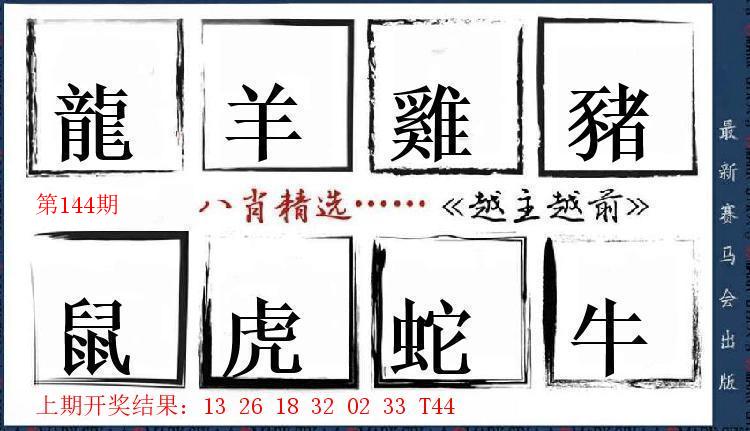 龍 羊 雞 豬
第144期 八肖精选…… 《越主越前》
鼠 虎 蛇 牛
上期开奖结果：13 26 18 32 02 33 T44
最新赛马会出版